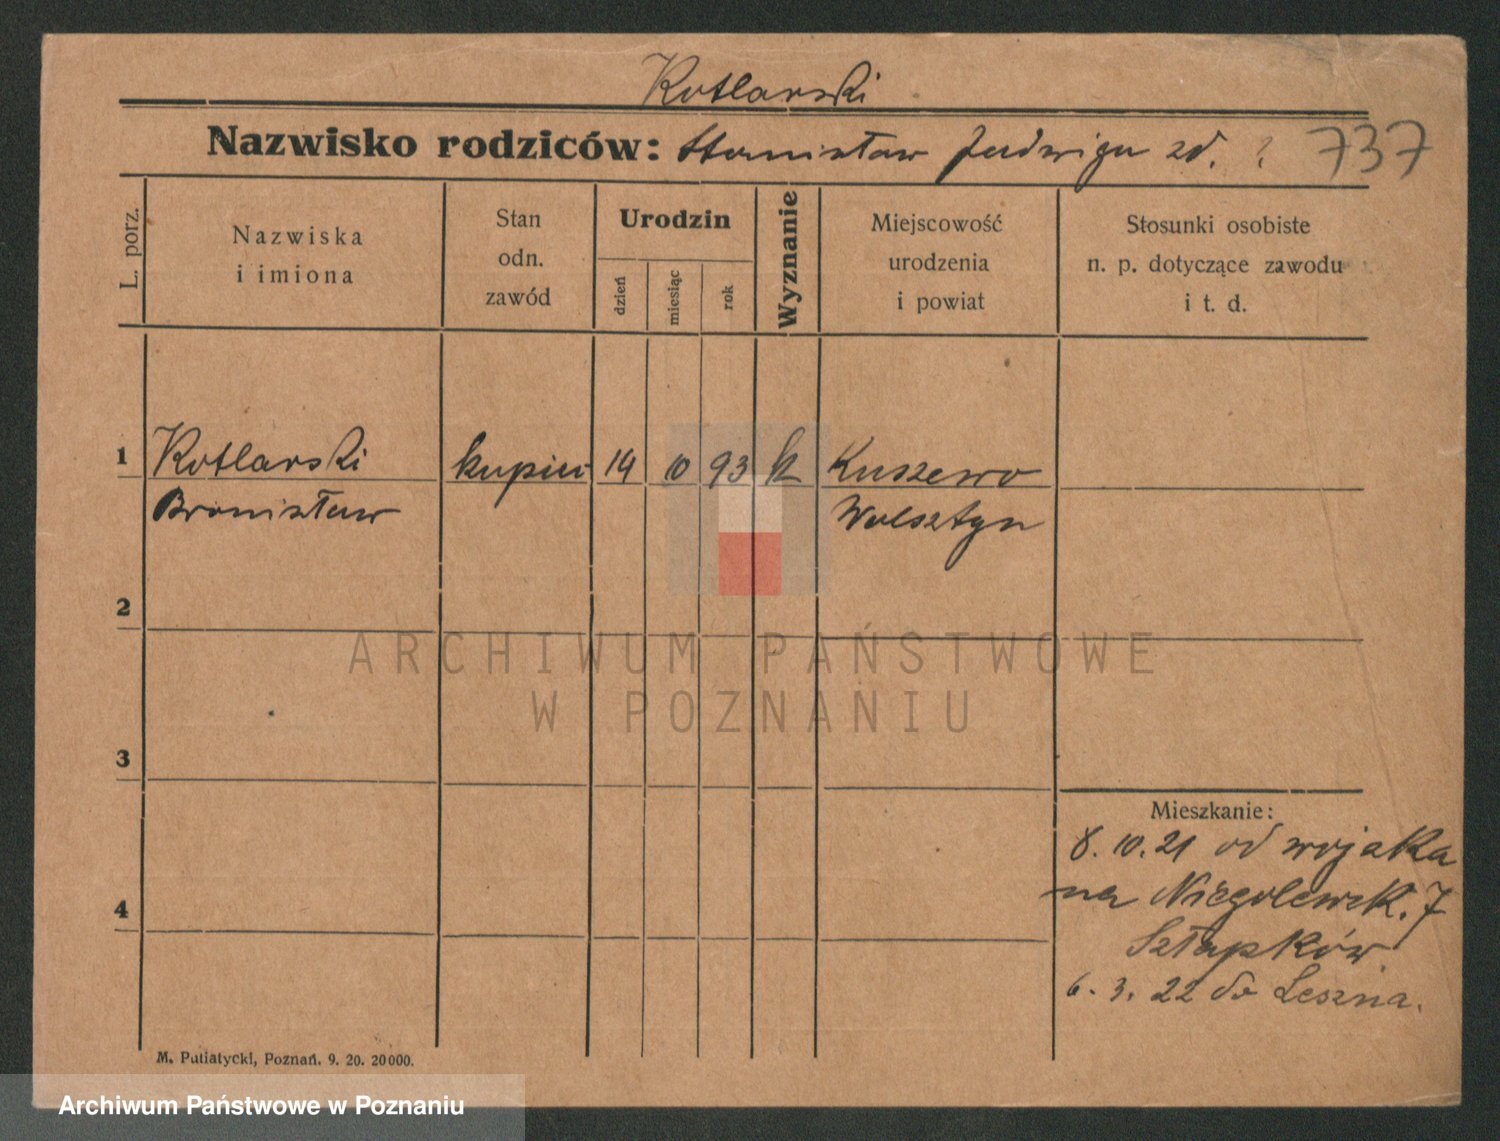 Kotlarski
Nazwisko rodziców: Stanisław Jadwiga zd. ? 737
L. porz.
Nazwiska
i imiona
Stan
odn.
zawód
Urodzin
dzień
miesiąc
rok
Wyznanie
Miejscowość
urodzenia
i powiat
Stosunki osobiste
n. p. dotyczące zawodu
i t. d.
1 Kotlarski kupiec 14 10 93 k Kuszewo
Bronisław Wolsztyn
2
3
4
Mieszkanie:
8. 10. 21 od wojaka
na Niegolewsk. 7
Sztapków
6. 3. 22 do Leszna.
M. Putiatycki, Poznań. 9. 20. 20000.
ARCHIWUM PAŃSTWOWE
W POZNANIU
Archiwum Państwowe w Poznaniu